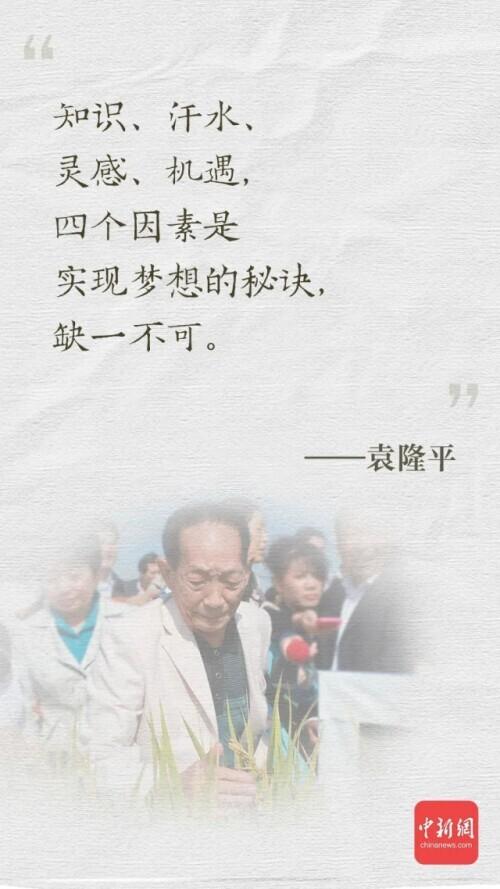 “
知识、汗水、
灵感、机遇,
四个因素是
实现梦想的秘诀,
缺一不可。
”
——袁隆平
中新網
chinanews.com